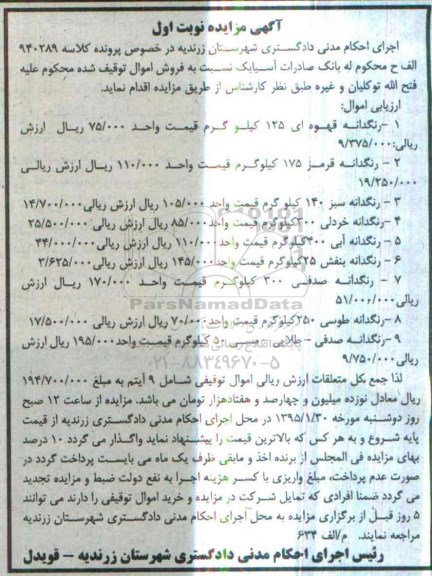 آگهی مزایده نوبت اول
اجرای احکام مدنی دادگستری شهرستان زرندیه در خصوص پرونده کلاسه ۹۴۰۲۸۹
الف ح محکوم له بانک صادرات آسیابک نسبت به فروش اموال توقیف شده محکوم علیه
فتح الله توکلیان و غیره طبق نظر کارشناس از طریق مزایده اقدام نماید.
ارزیابی اموال:
۱ -رنگدانه قهوه ای ۱۲۵ کیلو گرم قیمت واحد ۷۵/۰۰۰ ریال ارزش
ریالی:۹/۳۷۵/۰۰۰
۲ - رنگدانه قرمز ۱۷۵ کیلوگرم قیمت واحد ۱۱۰/۰۰۰ ریال ارزش ریالی
۱۹/۲۵۰/۰۰۰
۳ - رنگدانه سبز ۱۴۰ کیلو گرم قیمت واحد ۱۰۵/۰۰۰ ریال ارزش ریالی ۱۴/۷۰۰/۰۰۰
۴ -رنگدانه خردلی ۳۰۰کیلوگرم قیمت واحد ۸۵/۰۰۰ ریال ارزش ریالی ۲۵/۵۰۰/۰۰۰
۵ - رنگدانه آبی ۴۰۰کیلوگرم قیمت واحد ۱۱۰/۰۰۰ ریال ارزش ریالی ۴۴/۰۰۰/۰۰۰
۶ - رنگدانه بنفش ۲۵کیلوگرم قیمت واحد ۱۴۵/۰۰۰ ریال ارزش ریالی ۳/۶۲۵/۰۰۰
۷ - رنگدانه صدفی ۳۰۰ کیلوگرم قیمت واحد ۱۷۰/۰۰۰ ریال ارزش
ریالی ۵۱/۰۰۰/۰۰۰
ParsNamadData
۸ -رنگدانه طوسی ۲۵۰کیلوگرم قیمت واحد ۷۰/۰۰۰ ریال ارزش ریالی ۱۷/۵۰۰/۰۰۰
۹ -رنگدانه صدفی - طلایی - مسی ۵۰ کیلوگرم قیمت واحد ۱۹۵/۰۰۰ ریال ارزش
ریالی ۹/۷۵۰/۰۰۰
۰۲۱-۸۸۳۴۹۶۷۰-۵
لذا جمع بکل متعلقات ارزش ریالی اموال توقیفی شامل ۹ آیتم به مبلغ ۱۹۴/۷۰۰/۰۰۰
ریال معادل نوزده میلیون و چهارصد و هفتادهزار تومان می باشد. مزایده از ساعت ۱۲ صبح
روز دوشنبه مورخه ۱۳۹۵/۱/۳۰ در محل اجرای احکام مدنی دادگستری زرندیه از قیمت
پایه شروع و به هر کس که بالاترین قیمت را پیشنهاد نماید واگذار می گردد ۱۰ درصد
بهای مزایده فی المجلس از برنده اخذ و مابقی ظرف یک ماه می بایست پرداخت گردد در
صورت عدم پرداخت، مبلغ واریزی با کسر هزینه اجرا به نفع دولت ضبط و مزایده تجدید
می گردد ضمنا افرادی که تمایل شرکت در مزایده و خرید اموال توقیفی را دارند می توانند
۵ روز قبل از برگزاری مزایده به محل اجرای احکام مدنی دادگستری شهرستان زرندیه
مراجعه نمایند. م/الف ۶۳۴
رئیس اجرای احکام مدنی دادگستری شهرستان زرندیه - قویدل